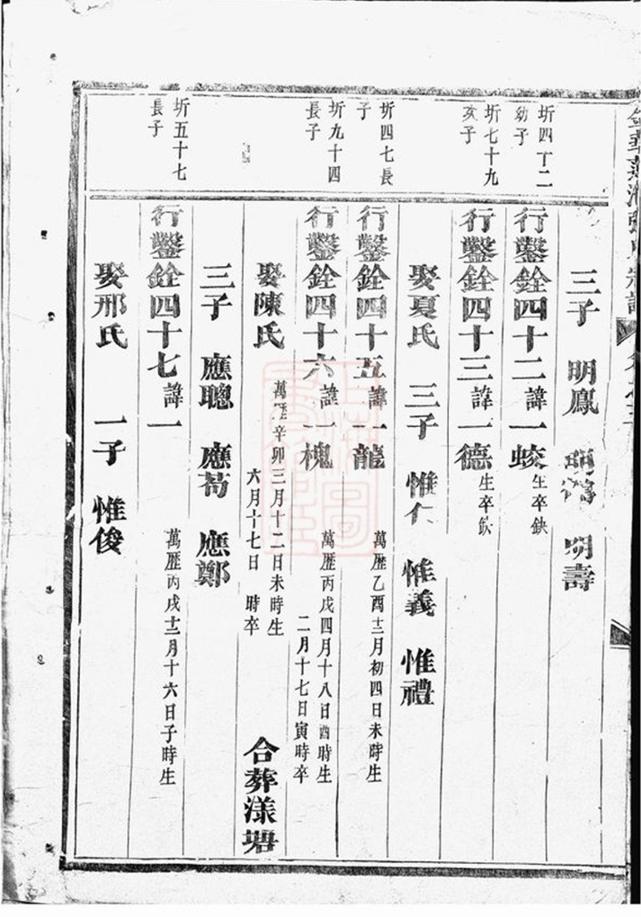 三子 明鳳 明壽
圻四十二幼子
行鑿銓四十二諱一蛟 生卒缺
圻七十九亥子
行鑿銓四十三諱一德 生卒缺
娶夏氏 三子 惟仁 惟義 惟禮
圻四七長子
行鑿銓四十五諱一龍 萬歷乙酉十二月初四日未時生
圻九十四長子
行鑿銓四十六諱一槐 萬歷丙戌四月十八日酉時生
二月十七日寅時卒
娶陳氏 萬歷辛卯三月十二日未時生
六月十七日 時卒
合葬漾塘
三子 應聰 應苟 應鄭
圻五十七長子
行鑿銓四十七諱一 萬歷丙戌十二月十六日子時生
娶邢氏 一子 惟俊